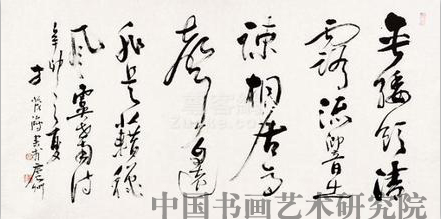 垂緌飲清
露流響出
疎桐居高
聲自遠
非是藉秋
風虞世南詩
辛卯之夏
中国书画艺术研究院